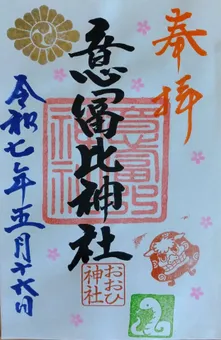 奉拝
意富比神社
意富比
神社
おおひ
神社
令和七年五月十六日